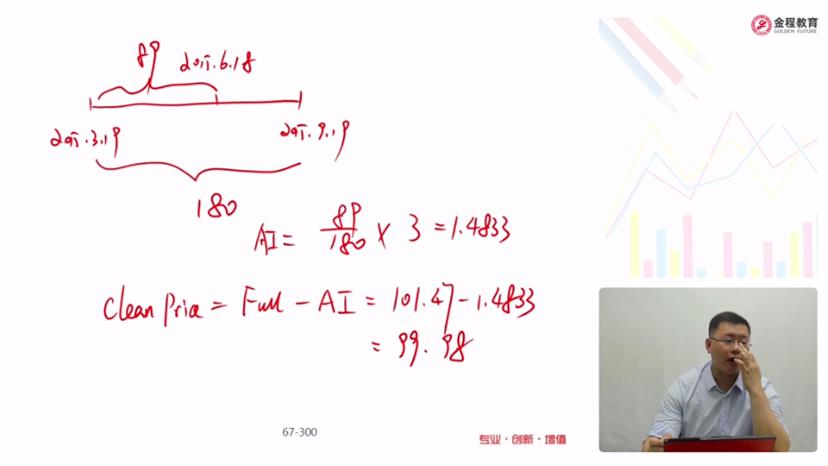 金程教育
GOLDEN FUTURE
89
2015.6.18
2015.3.19
2015.9.19
180
AI = 89/180 × 3 = 1.4833
Clean Price = Full - AI = 101.47 - 1.4833
= 99.98
67-300
专业·创新·增值